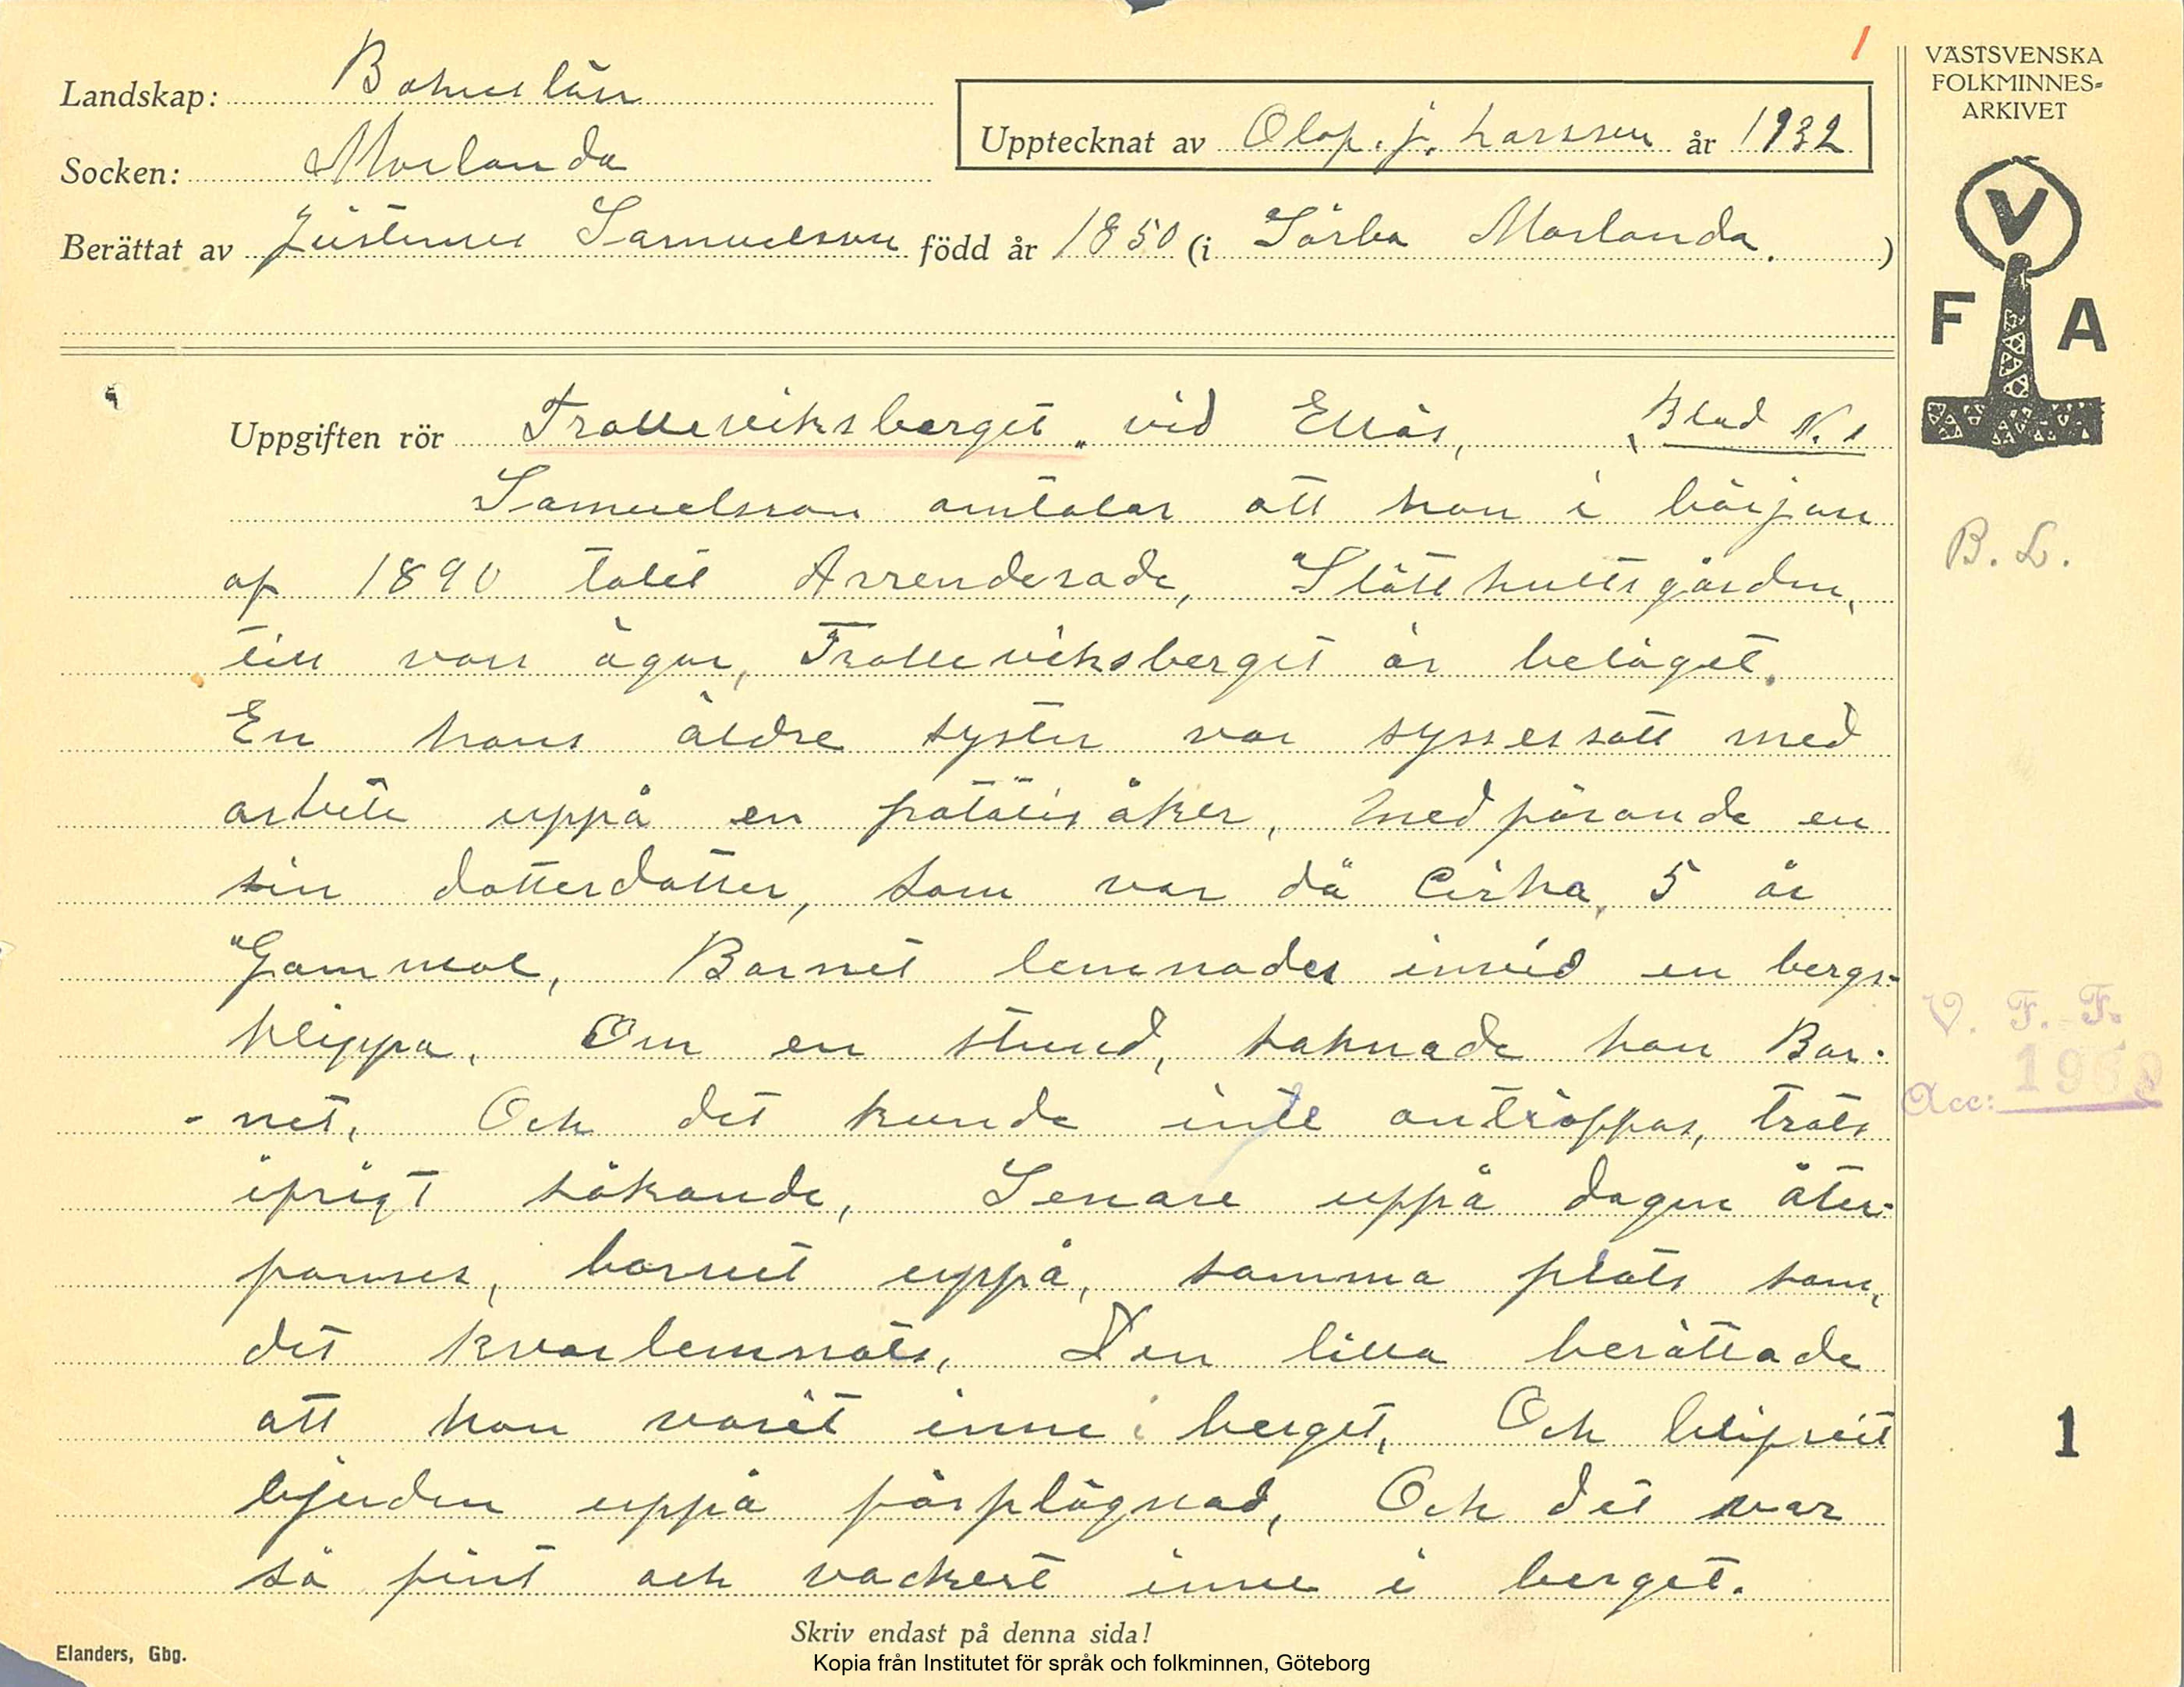 1
VÄSTSVENSKA
FOLKMINNES-
ARKIVET
Landskap: Bohuslän
Upptecknat av Olof. J. Larsson år 1932
Socken: Morlanda
Berättat av Justinus Samuelsson född år 1850 (i Sörbo Morlanda. )
V
F A
Uppgiften rör Trolleviksberget„ vid Ellös, Blad N. 1
Samuelsson omtalar att han i början
B. L.
af 1890 talet Arrenderade, "Slätthultsgården,
till vars ägor, Trolleviksberget är beläget.
En hans äldre syster var sysselsatt med
arbete uppå en potatisåker, medförande en
sin dotterdotter, som var då Cirka, 5 år
"Gammal, Barnet lemnades invid en bergs-
klippa. Om en stund, saknade hon Bar-
-net. Och det kunde inte anträffas, trots
ifrigt sökande, Senare uppå dagen åter-
fanns, barnet uppå, samma plats som,
det kvarlemnats, Den lilla berättade
att hon varit inne i berget, Och blifvit
bjuden uppå förplägnad, Och det var
så fint och vackert inne i berget.
V. F. F.
Acc:
1
Skriv endast på denna sida!
Elanders, Gbg.
Kopia från Institutet för språk och folkminnen, Göteborg